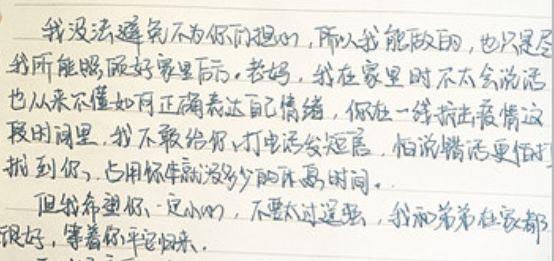 我没法避免不为你们担心，所以我能做的，也只是尽
我所能照顾好家里后方。老妈，我在家里时不太会说话
也从来不懂如何正确表达自己情绪，你在一线抗击疫情这
段时间里，我不敢给你打电话发短信，怕说错话更怕打
扰到你，占用你本就没多少的休息时间。
但我希望你一定小心，不要太过逞强，我和弟弟在家都
很好，等着你平安归来。